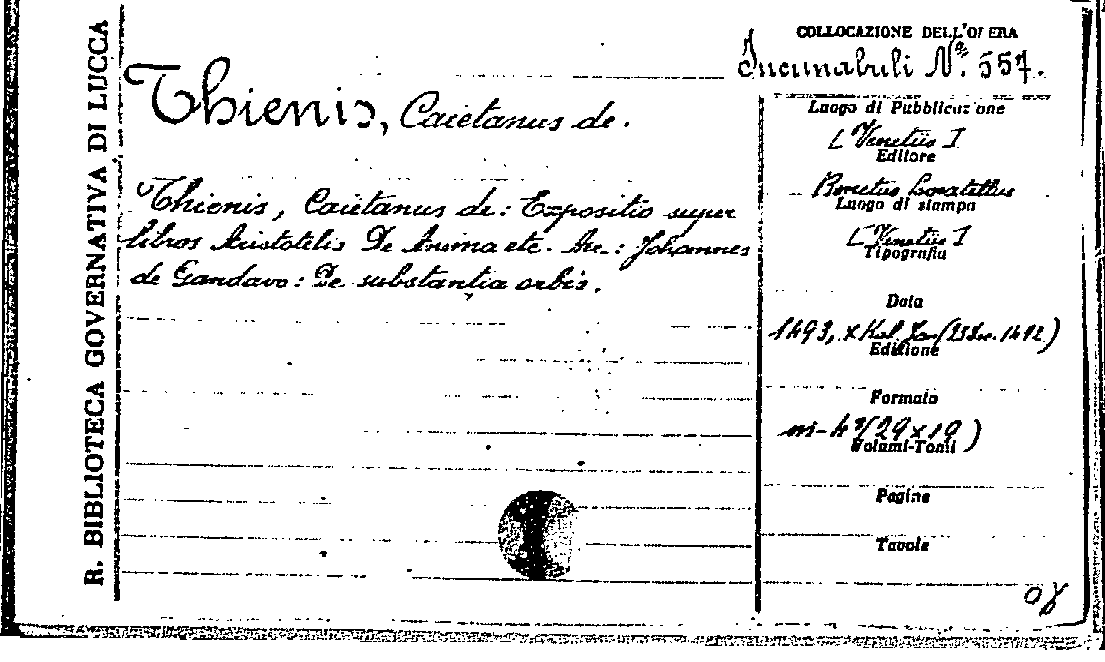 R. BIBLIOTECA GOVERNATIVA DI LUCCA
COLLOCAZIONE DELL'OPERA
Incunabuli Nº. 557.
Thienis, Caietanus de.
Thienis, Caietanus de: Expositio super
libros Aristotelis De Anima etc. Acc.: Johannes
de Gandavo: De substantia orbis.
Luogo di Pubblicazione
[Venetiis]
Editore
Bonetus Locatellus
Luogo di stampa
[Venetiis]
Tipografia
Data
1493, x Kal. Jan (23 Dec. 1492)
Edizione
Formato
in-4º (29 x 19)
Volumi-Tomi
Pagine
Tavole